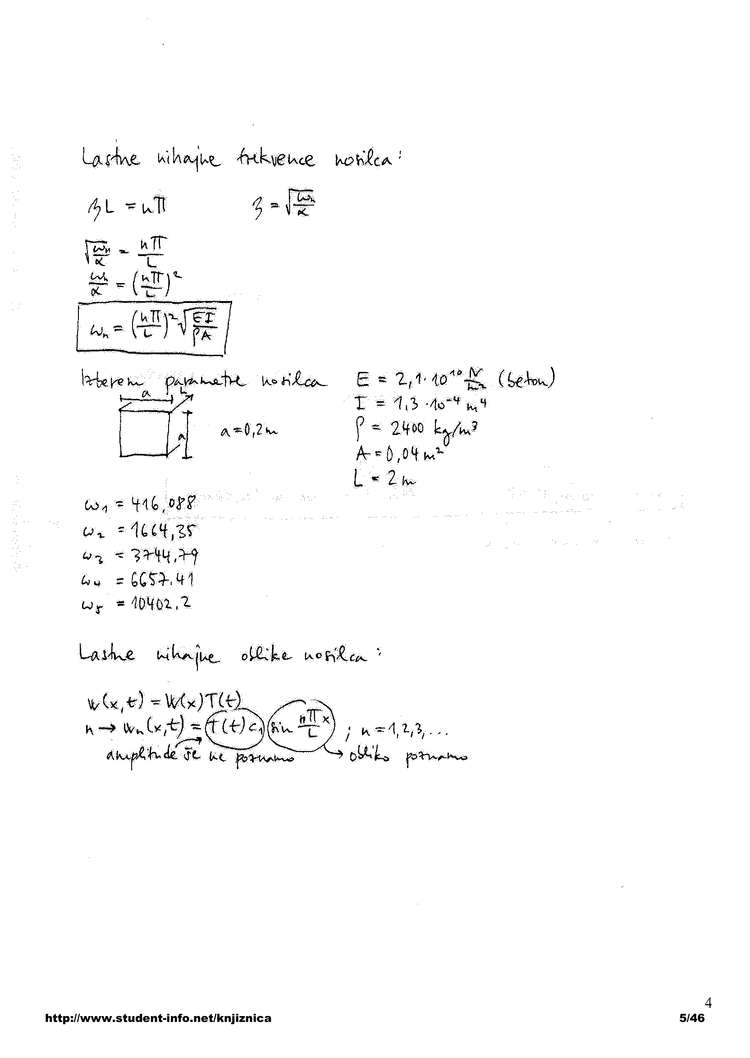 Lastne nihajne frekvence nosilca:
βL = nπ β = √(ωn/α)
√(ωn/α) = nπ/L
ωn/α = (nπ/L)²
ωn = (nπ/L)² √(EI/ρA)
Izberem parametre nosilca E = 2,1·10¹⁰ N/m² (beton)
a L I = 1,3·10⁻⁴ m⁴
a a=0,2m ρ = 2400 kg/m³
A = 0,04 m²
L = 2 m
ω₁ = 416,088
ω₂ = 1664,35
ω₃ = 3744,79
ω₄ = 6657,41
ω₅ = 10402,2
Lastne nihajne oblike nosilca:
W(x,t) = W(x)T(t)
n → wn(x,t) = T(t) c₁ sin nπx/L ; n=1,2,3,...
amplitude še ne poznamo → obliko poznamo
4
http://www.student-info.net/knjiznica 5/46